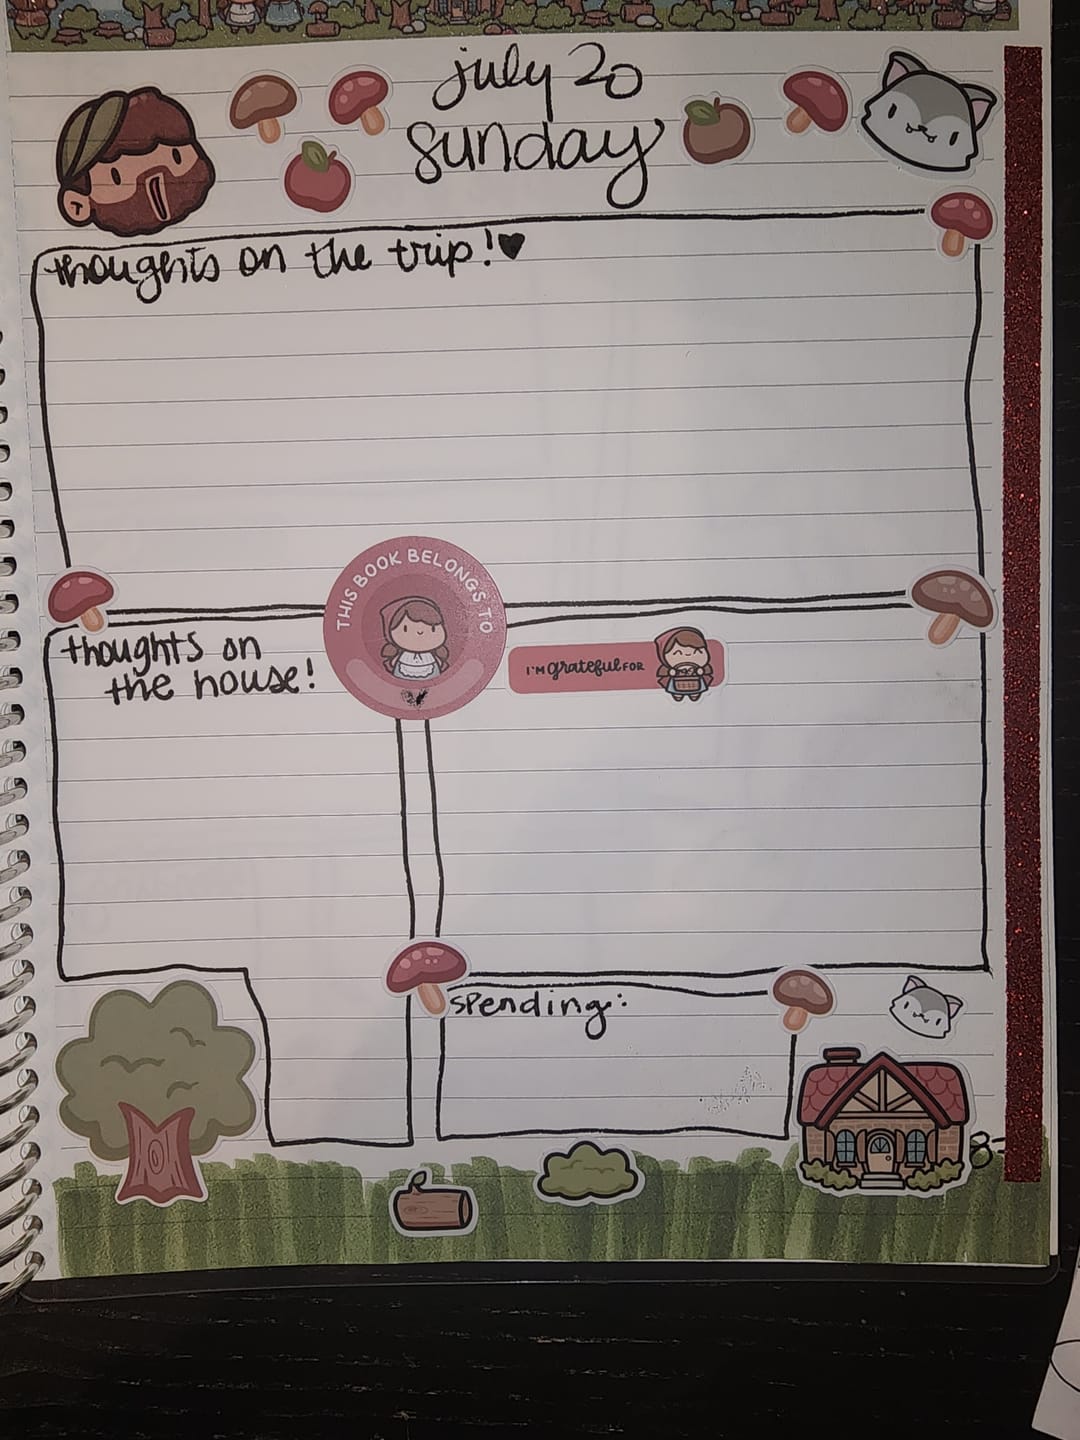 july 20
sunday
thoughts on the trip!♥
THIS BOOK BELONGS TO
thoughts on
the house!
I'M grateful FOR
spending: